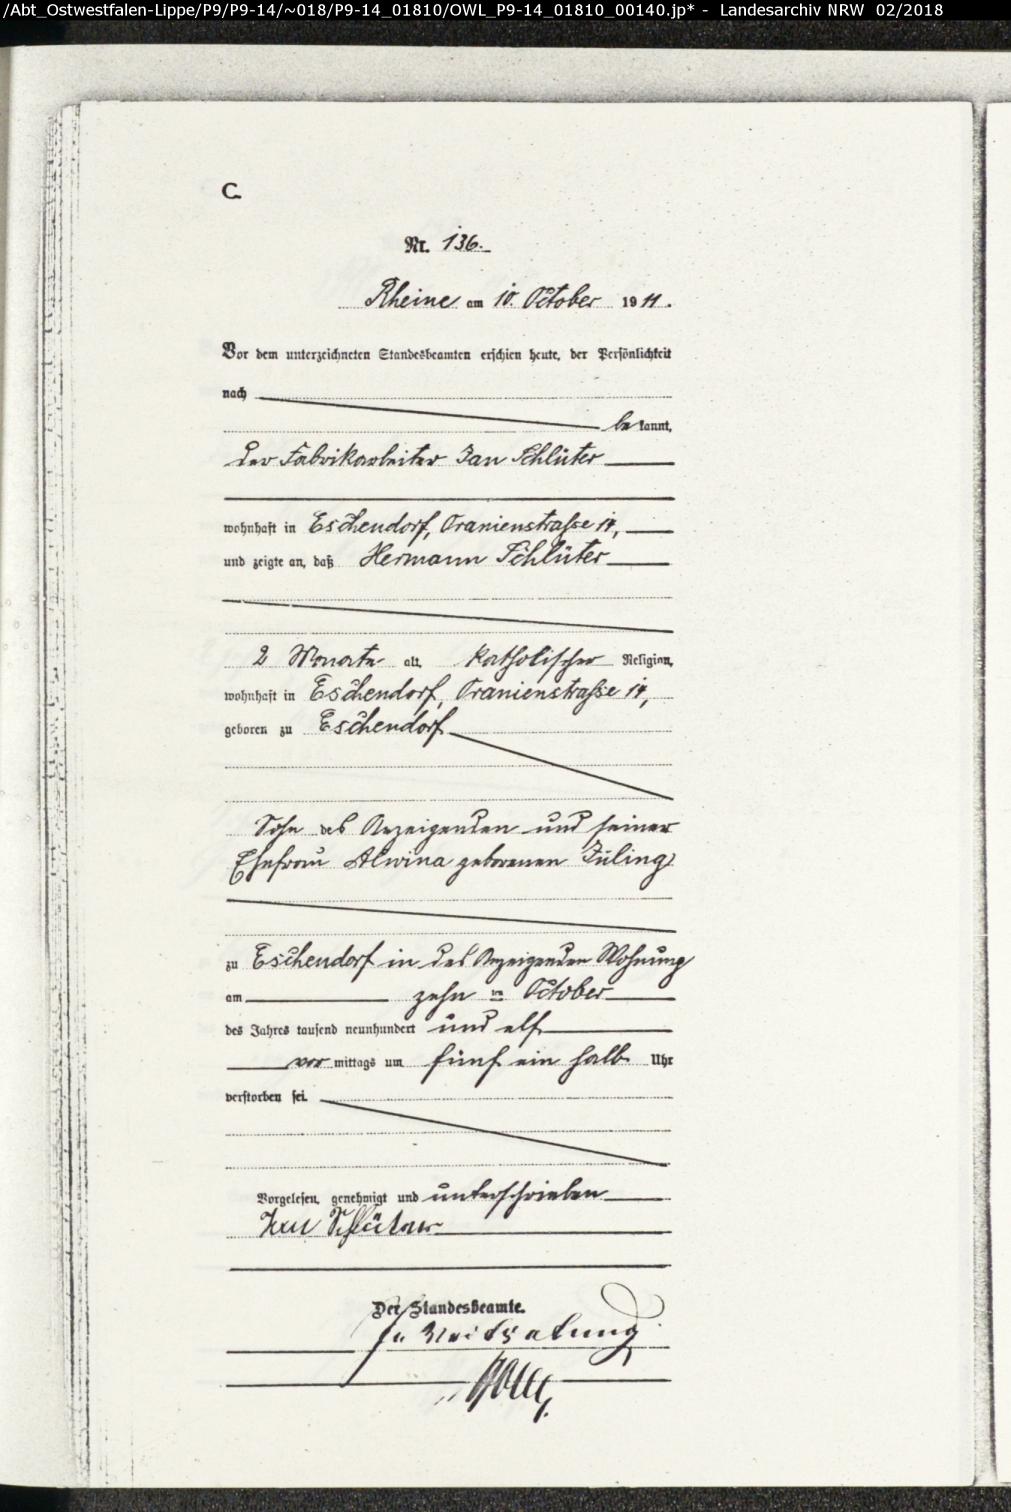 /Abt_Ostwestfalen-Lippe/P9/P9-14/~018/P9-14_01810/OWL_P9-14_01810_00140.jp* - Landesarchiv NRW 02/2018
C.
Nr. 136.
Rheine am 10. October 1911.
Vor dem unterzeichneten Standesbeamten erschien heute, der Persönlichkeit
nach
be kannt,
der Fabrikarbeiter Jan Schlüter
wohnhaft in Eschendorf, Oranienstrasse 14,
und zeigte an, daß Hermann Schlüter
2 Monate alt, katholischer Religion,
wohnhaft in Eschendorf, Oranienstrasse 14,
geboren zu Eschendorf
Sohn des Anzeigenden und seiner
Ehefrau Alwina geborenen Züling
zu Eschendorf in des Anzeigenden Wohnung
am zehn ten October
des Jahres tausend neunhundert und elf
vor mittags um fünf ein halb Uhr
verstorben sei.
Vorgelesen, genehmigt und unterschrieben
Jan Schlüter
Der Standesbeamte.
In Vertretung